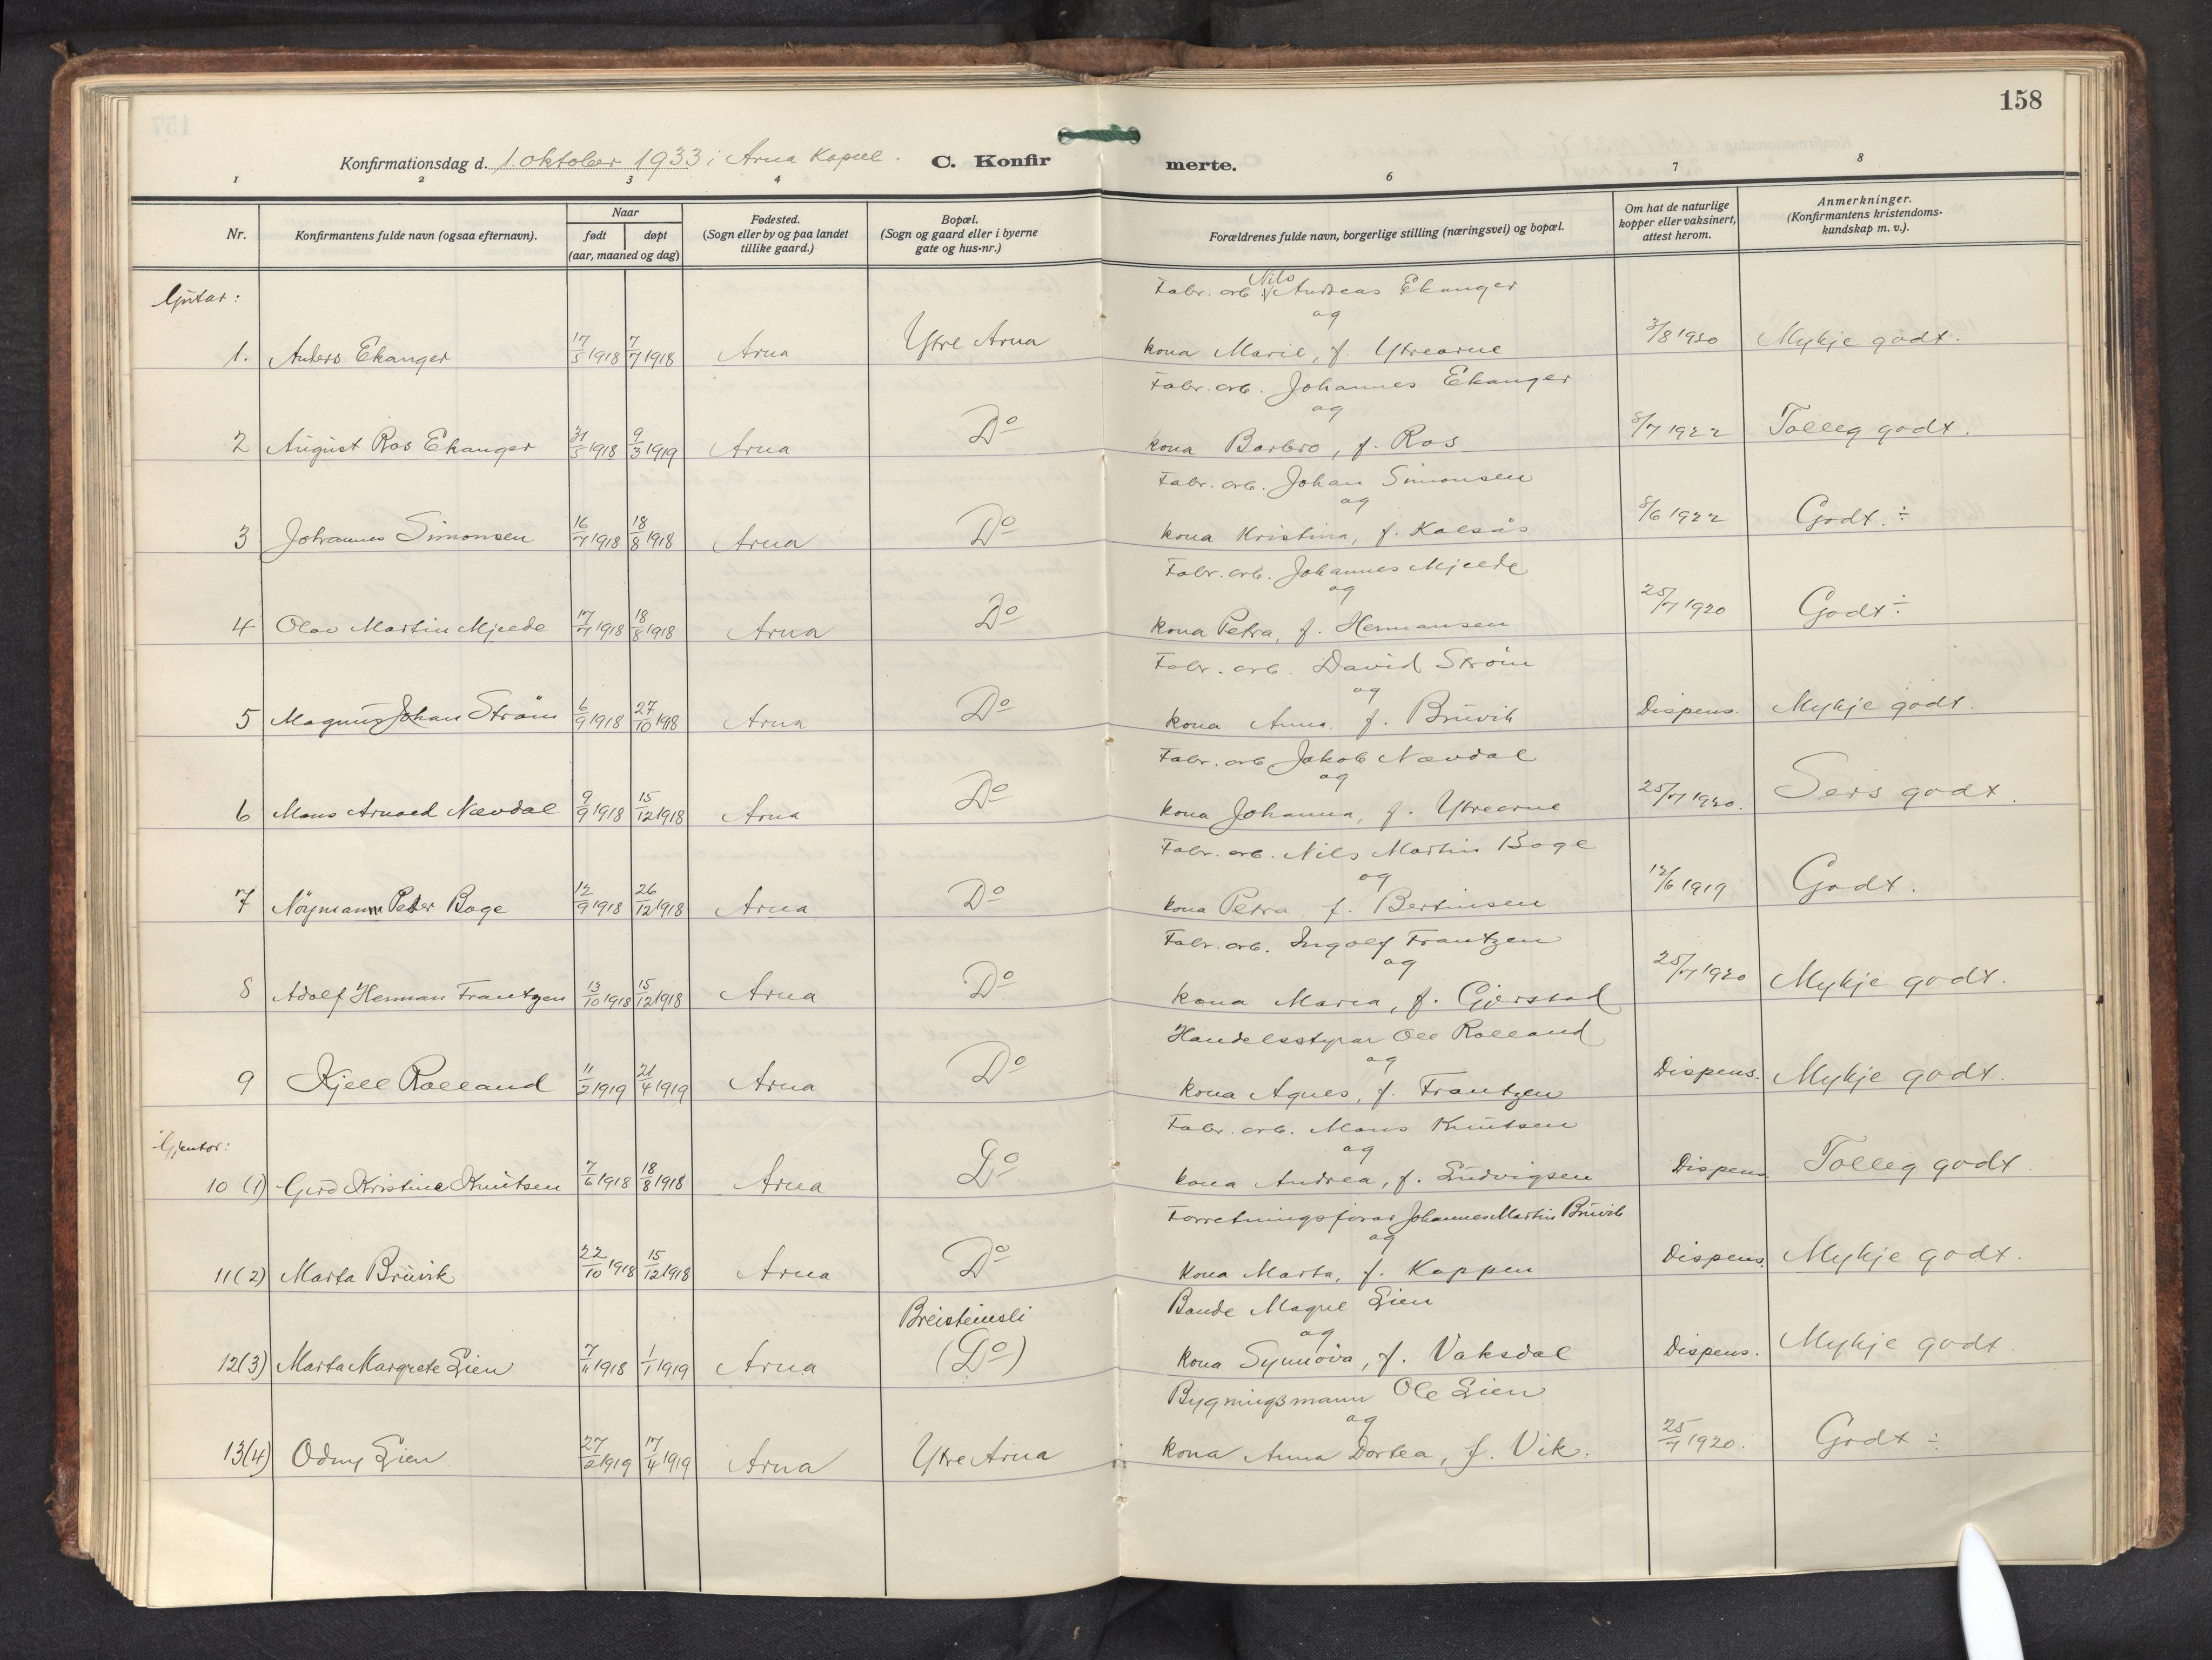 158
Konfirmationsdag d. 1. oktober 1933 i Arna Kapell. C. Konfirmerte.
1 2 3 4 5 6 7 8
Nr. Konfirmantens fulde navn (ogsaa efternavn). Naar født døpt (aar, maaned og dag) Fødested. (Sogn eller by og paa landet tillike gaard.) Bopæl. (Sogn og gaard eller i byerne gate og hus-nr.) Forældrenes fulde navn, borgerlige stilling (næringsvei) og bopæl. Om hat de naturlige kopper eller vaksinert, attest herom. Anmerkninger. (Konfirmantens kristendoms-kundskap m. v.).
Gutar:
Fabr. arb. Nils Andreas Ekanger
og
1. Anders Ekanger 17/5 1918 7/7 1918 Arna Ytre Arna kona Marie, f. Ytrearne 3/8 1920 Mykje godt.
Fabr. arb. Johannes Ekanger
og
2 August Ros Ekanger 31/5 1918 9/3 1919 Arna Do kona Barbro, f. Ros 8/7 1922 Tolleg godt.
Fabr. arb. Johan Simonsen
og
3 Johannes Simonsen 16/7 1918 18/8 1918 Arna Do kona Kristina, f. Kalsås 8/6 1922 Godt. ÷
Fabr. arb. Johannes Mjelde
og
4 Olav Martin Mjelde 17/7 1918 18/8 1918 Arna Do kona Petra, f. Hermansen 25/7 1920 Godt ÷
Fabr. arb. David Strøm
og
5 Magnus Johan Strøm 6/9 1918 27/10 1918 Arna Do kona Anna f. Bruvik Dispens. Mykje godt.
Fabr. arb. Jakob Nævdal
og
6 Mons Arnold Nævdal 9/9 1918 15/12 1918 Arna Do kona Johanna, f. Ytrearne 25/7 1920. Sers godt.
Fabr. arb. Nils Martin Boge
og
7 Nøymann Peter Boge 12/9 1918 26/12 1918 Arna Do kona Petra f. Bertinsen 12/6 1919 Godt.
Fabr. arb. Ingolf Frantzen
og
8 Adolf Herman Frantzen 13/10 1918 15/12 1918 Arna Do kona Maria, f. Gjerstad 25/7 1920 Mykje godt.
Handelsstyrar Ole Rolland
og
9 Kjell Rolland 11/2 1919 21/4 1919 Arna Do kona Agnes, f. Frantzen Dispens. Mykje godt.
Gjentor:
Fabr. arb. Mons Knutsen
og
10 (1) Gerd Kristine Knutsen 7/6 1918 18/8 1918 Arna Do kona Andrea, f. Ludvigsen Dispens Tolleg godt.
Forretningsførar Johannes Martin Bruvik
og
11(2) Marta Bruvik 22/10 1918 15/12 1918 Arna Do kona Marta, f. Koppen Dispens. Mykje godt.
Bonde Magne Lien
og
12(3) Marta Margrete Lien 7/11 1918 1/1 1919 Arna Breisteinsli (Do) kona Synnøva, f. Vaksdal Dispens. Mykje godt.
Bygningsmann Ole Lien
og
13(4) Odny Lien 27/2 1919 17/4 1919 Arna Ytre Arna kona Anna Dortea, f. Vik. 25/7 1920. Godt ÷